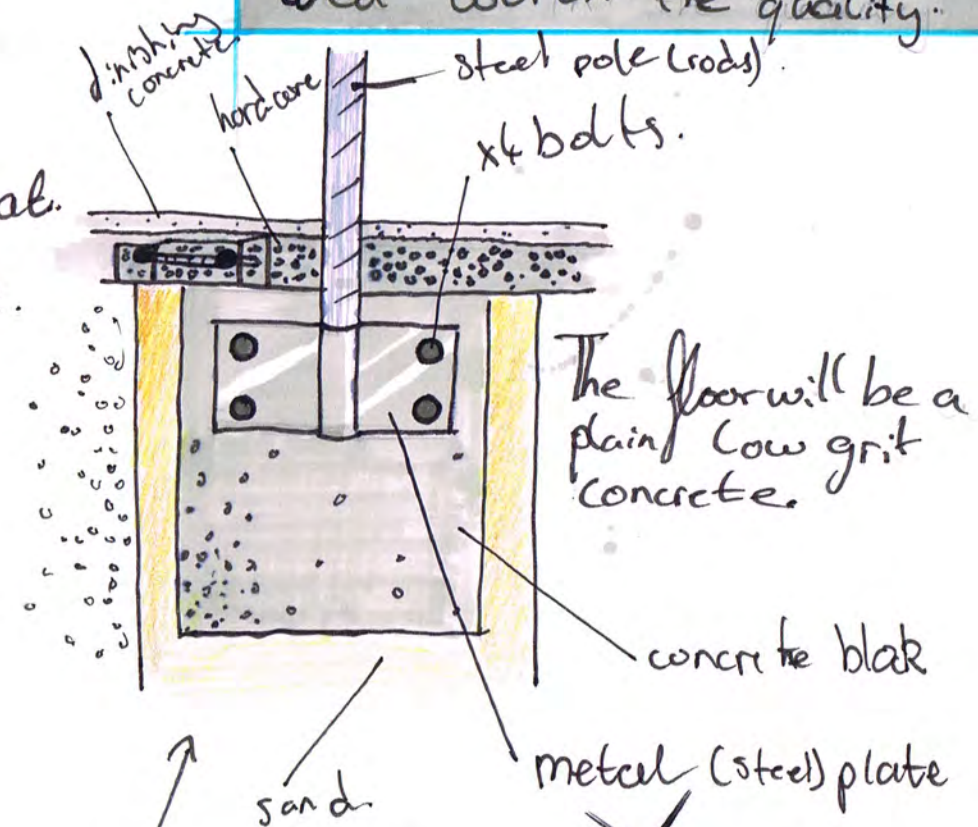 the quality.
finishing
concrete
hardcore
steel pole (rods).
x4 bolts.
at.
The floor will be a
plain low grit
concrete.
concrete blok
metal (steel) plate
sand.